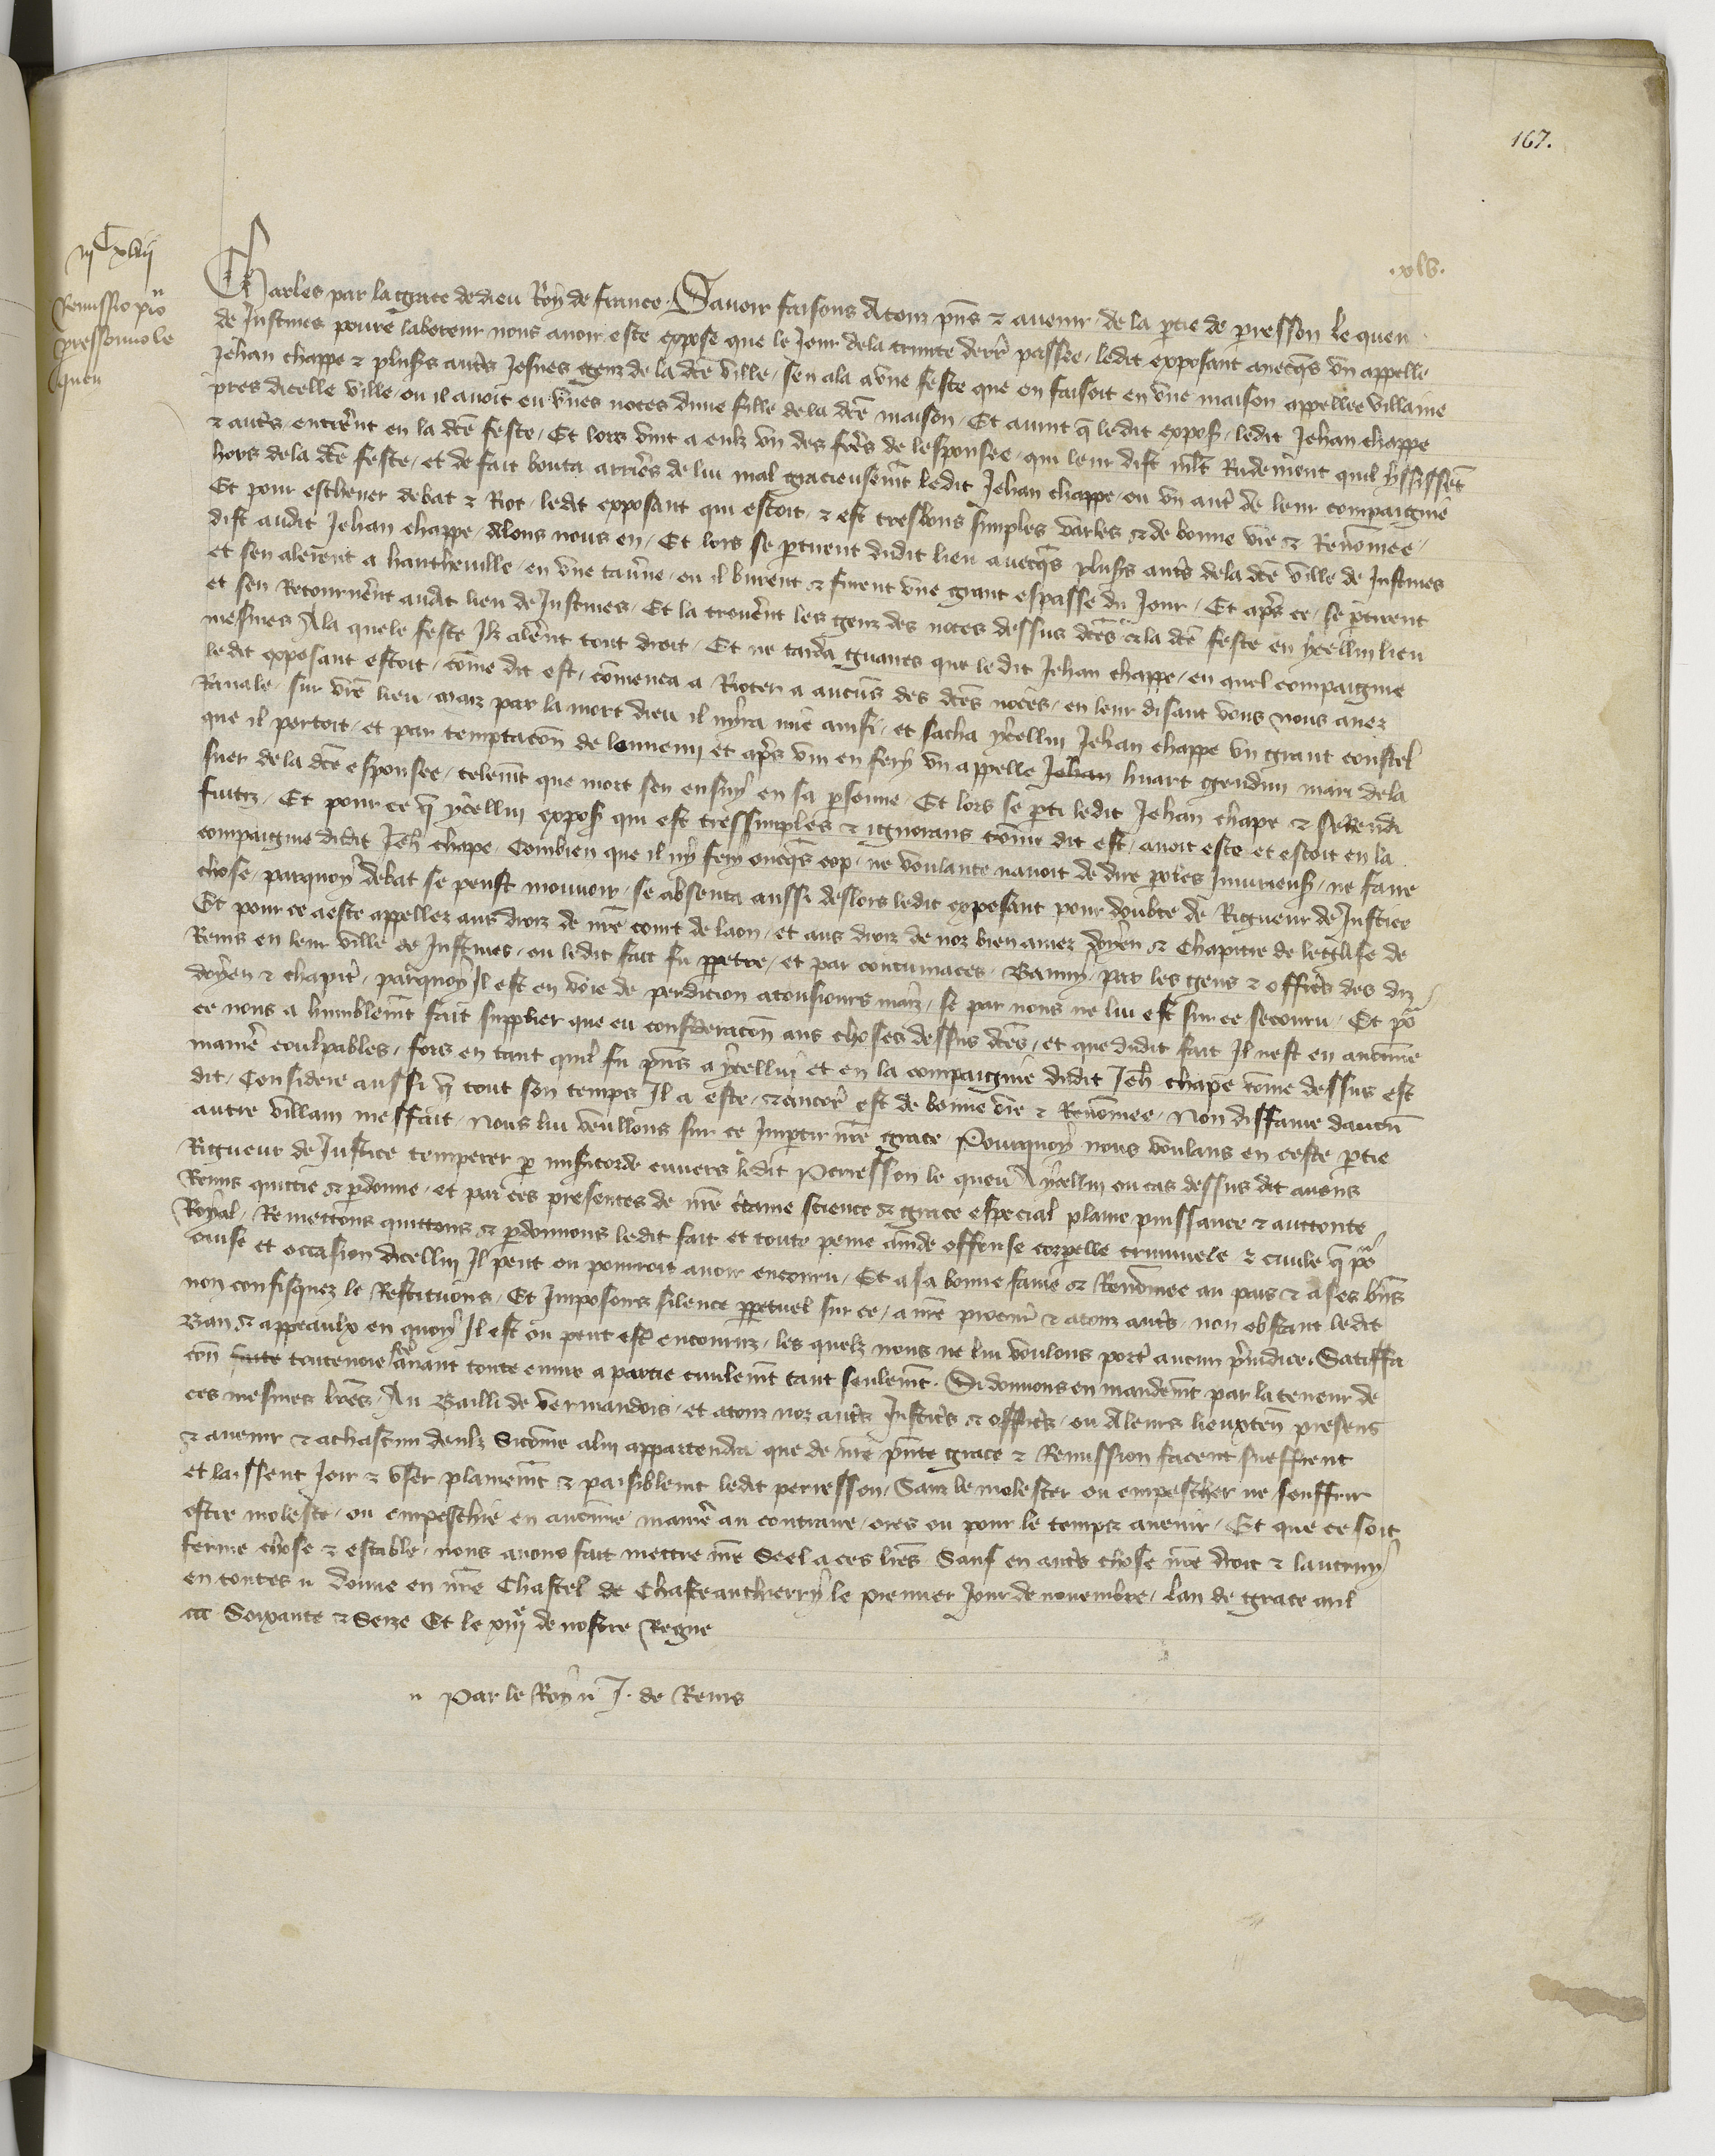 167.
.xlv.
iijC xvij
Remissio pro
pressonno le
queu
Charles par la grace de dieu Roy de france. Savoir faisons A touz pñs & avenir, de la partie de presson le queu
de Justines povre laboreur nous avoir este expose que le Jour de la trinite derr passee, ledit exposant avecqs un appelle
Jehan chappe & plusrs autrs Jesnes genz de la dce ville, sen ala a une feste que on faisoit en une maison appellee villaine
pres dicelle ville, ou il avoit eu unes noces dune fille de la dce maison, Et avint q ledit expos, ledit Jehan chappe
& autrs entrerent en la dce feste, Et lors vint a eulz un des frers de lespousee, qui leur dist mlt Rudement quil yssissent
hors de la dce feste, et de fait bouta arriers de lui mal gracieusemt ledit Jehan chappe, ou un autr de leur compaignie
Et pour eschever debat & Riot, ledit exposant qui estoit, & est tresbons simples varles & de bonne vie & Renommee,
dist audit Jehan chappe, Alons nous en, Et lors se ptirent dudit lieu avecqs plusrs autrs de la dce ville de Justines
et sen alerent a hautheville, en une taverne, ou il burent & furent une grant espasse du Jour, Et aprs ce, se ptirent
et sen Retournerent audit lieu de Justines, Et la troverent les genz des noces dessus dces & la dce feste en ycellui lieu
mesmes A la quele feste Ilz alerent tout droit, Et ne tarda guaires que ledit Jehan chappe, en quel compaignie
ledit exposant estoit, come dit est, comenca a Rioter a aucuns des dces noces, en leur disant vous nous avez
Ravale, sur vre lieu, maiz par la mort dieu il nyra mie ainsi, et sacha ycellui Jehan chappe un grant coustel
que il portoit, et par temptacon de lennemi et aprs vin en fery un appelle Jehan huart gendun mari de la
suer de la dce espousee, telemt que mort sen ensuy en sa personne, Et lors se pti ledit Jehan chape & se Rendi
fuitiz, Et pour ce q ycellui expos qui est tressimples & ignorans come dit est, avoit este et estoit en la
compaignie dudit Jeh chape, Combien que il ny fery oncqs cop, ne voulante navoit de dire poles Injurieuss, ne faire
chose, parquoy debat se peust mouvoir, se absenta aussi deslors ledit exposant pour doubte de Rigueur de Justice
Et pour ce a este appellez aus droiz de nre comt de laon, et aus droiz de noz bien amez doyen & Chapitre de leglise de
Reins en leur ville de Justines, ou ledit fait fu ppetre, et par contumaces, Banny, par les gens & officrs des diz
doyen & chapitr, parquoy Il est en voie de perdicion a tousjours maiz, se par nous ne lui est sur ce secouru, Et po
ce nous a humblemt fait supplier que eu consideracon aus choses dessus dces, et que dudit fait Il nest en aucune
maniere coulpables, fors en tant quil fu pns a ycellui et en la compaignie dudit Jeh chape come dessus est
dit, Considere aussi q tout son temps Il a este, & encor est de bonne vie & Renommee, Non diffame daucun
autre villain meffait, Nous lui veullons sur ce Impartir nre grace, Pourquoy nous voulans en ceste ptie
Rigueur de Justice temperer p misricorde envers ledit Perresson le queu A ycellui ou cas dessus dit avons
Remis quictie & pdonne, et par ces presentes de nre ctaine science & grace especial plaine puissance & auctorite
Royal, Remettons quittons & pdonnons ledit fait et toute peine amde offense corpelle criminele & civile q po
cause et occasion dicellui Il peut ou pourroit avoir encouru, Et a sa bonne fame & Renommee au pais & a ses bns
non confisquez le Restituons, Et Imposons silence ppetuel sur ce, a nre procur & a touz autrs, non obstant ledit
Ban & appeaulx en quoy Il est ou peut estr encouruz, les quelz nous ne lui voulons portr aucun prjudice, Satiffa
con faite toutevoie faite avant toute euvre a partie civilemt tant seulemt. Si donnons en mandemt par la teneur de
ces mesmes lres, Au Bailli de Vermandois, et a touz noz autrs Justicrs & officrs, ou A leurs lieuxten presens
& avenir & a chascun deulx Sicome a lui appartendra que de nre pnte grace & Remission facent sueffrent
et laissent Joir & user plainemt & paisiblemt ledit perresson, Sanz le molester ou empescher ne souffrir
estre moleste, ou empeschie en aucune maniere au contraire, ores ou pour le temps avenir, Et que ce soit
ferme chose & estable, nous avons fait mettre nre Seel a ces lres Sauf en autrs chose nre droit & lautruy
en toutes. donne en nre Chastel de Chasteauthierry le premier Jour de novembre, Lan de grace mil
ccc Soixante & Seze Et le xiije de nostre Regne
Par le Roy J. de Reins